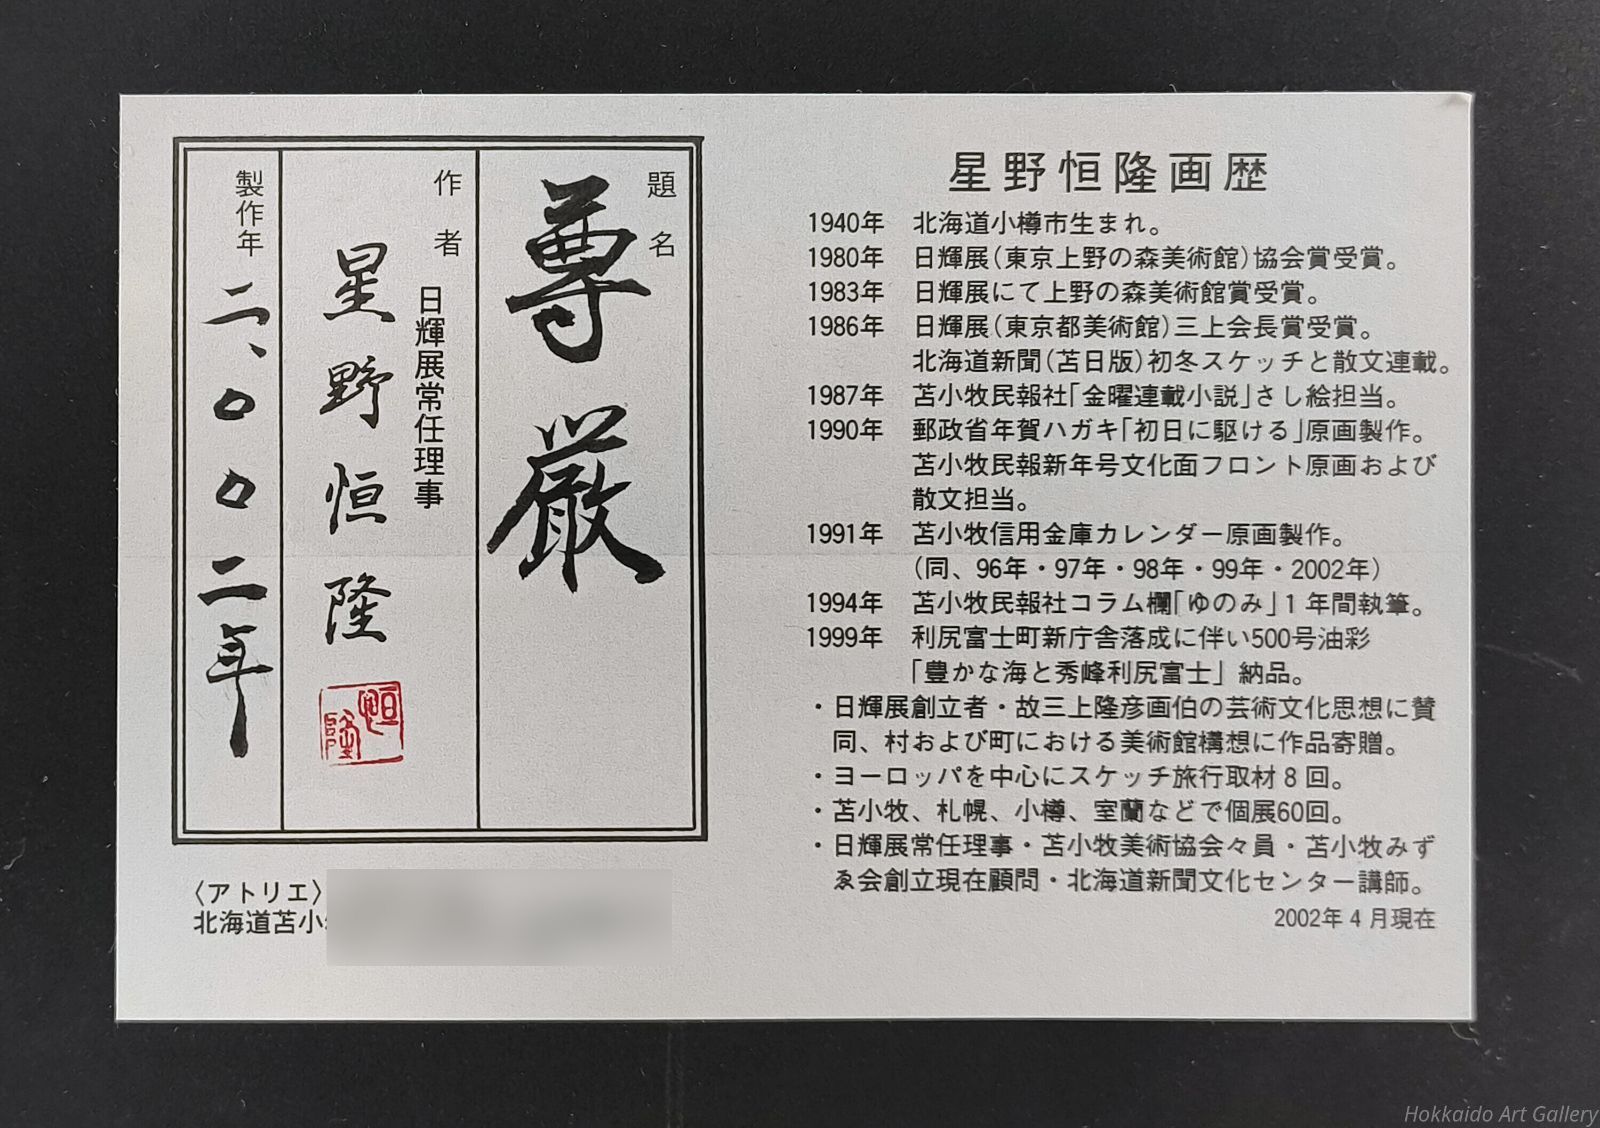 題名
尊厳
作者
日輝展常任理事
星野恒隆
恒隆
製作年
二、〇〇二年
〈アトリエ〉
北海道苫小
星野恒隆画歴
1940年 北海道小樽市生まれ。
1980年 日輝展(東京上野の森美術館)協会賞受賞。
1983年 日輝展にて上野の森美術館賞受賞。
1986年 日輝展(東京都美術館)三上会長賞受賞。
北海道新聞(苫日版)初冬スケッチと散文連載。
1987年 苫小牧民報社「金曜連載小説」さし絵担当。
1990年 郵政省年賀ハガキ「初日に駆ける」原画製作。
苫小牧民報新年号文化面フロント原画および
散文担当。
1991年 苫小牧信用金庫カレンダー原画製作。
(同、96年・97年・98年・99年・2002年)
1994年 苫小牧民報社コラム欄「ゆのみ」1年間執筆。
1999年 利尻富士町新庁舎落成に伴い500号油彩
「豊かな海と秀峰利尻富士」納品。
・日輝展創立者・故三上隆彦画伯の芸術文化思想に賛
同、村および町における美術館構想に作品寄贈。
・ヨーロッパを中心にスケッチ旅行取材8回。
・苫小牧、札幌、小樽、室蘭などで個展60回。
・日輝展常任理事・苫小牧美術協会々員・苫小牧みず
ゑ会創立現在顧問・北海道新聞文化センター講師。
2002年4月現在
Hokkaido Art Gallery